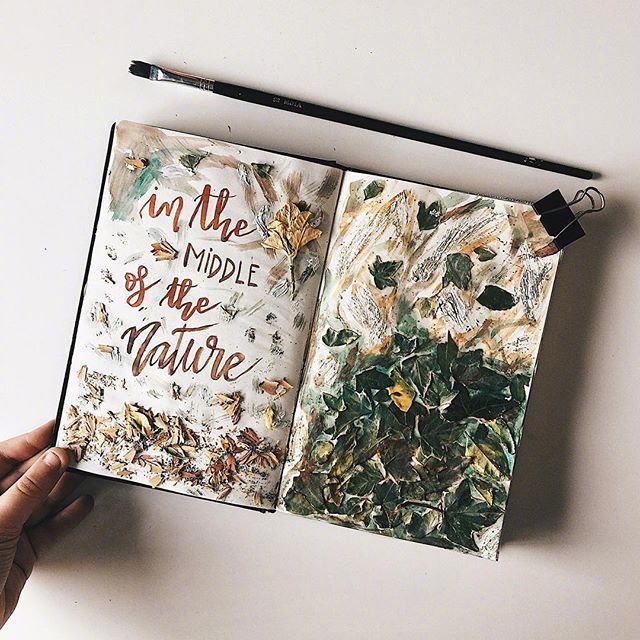 in the
MiDDLE
of the
Nature